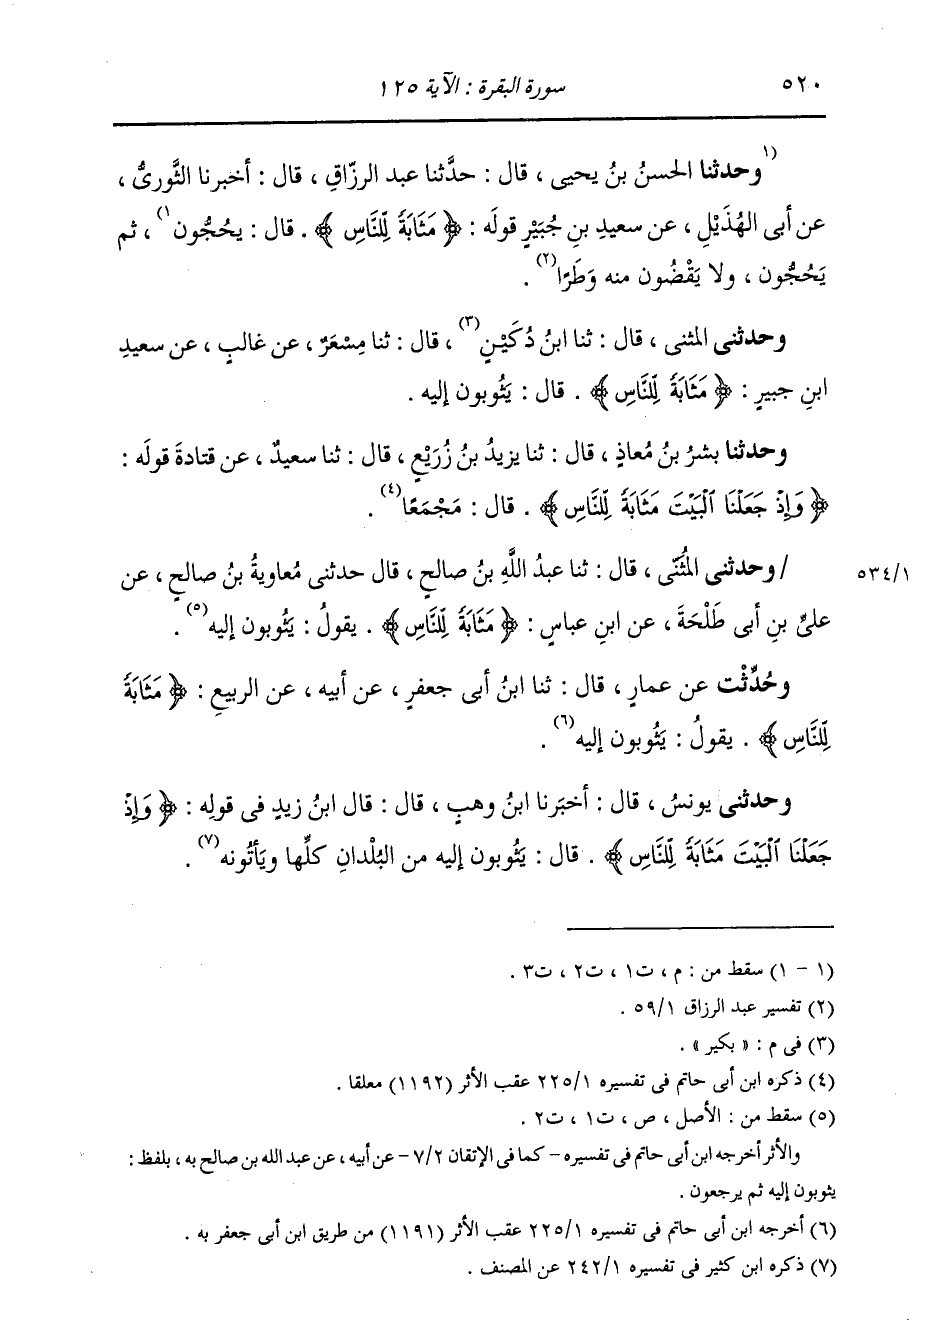 ٥٢٠ سورة البقرة : الآية ١٢٥
(١)وحدثنا الحسنُ بنُ يحيى ، قال : حدَّثنا عبد الرزّاقِ ، قال : أخبرنا الثَّورىُّ ،
عن أبى الهُذَيْلِ ، عن سعيدِ بنِ جُبَيْرٍ قولَه : ﴿ مَثَابَةً لِّلنَّاسِ ﴾ . قال : يحُجُّون(١) ، ثم
يَحُجُّون ، ولا يَقْضُون منه وَطَرًا(٢) .
وحدثنى المثنى ، قال : ثنا ابنُ دُكَيْنٍ(٣) ، قال : ثنا مِسْعَرٌ ، عن غالبٍ ، عن سعيدِ
ابنِ جبيرٍ : ﴿ مَثَابَةً لِّلنَّاسِ ﴾ . قال : يَثُوبون إليه .
وحدثنا بشرُ بنُ مُعاذٍ ، قال : ثنا يزيدُ بنُ زُرَيْعٍ ، قال : ثنا سعيدٌ ، عن قتادةَ قولَه :
﴿ وَإِذْ جَعَلْنَا ٱلْبَيْتَ مَثَابَةً لِّلنَّاسِ ﴾ . قال : مَجْمَعًا(٤) .
٥٣٤/١ / وحدثنى المُثَنّى ، قال : ثنا عبدُ اللَّهِ بنُ صالحٍ ، قال حدثنى مُعاويةُ بنُ صالحٍ ، عن
علىِّ بنِ أبى طَلْحَةَ ، عن ابنِ عباسٍ : ﴿ مَثَابَةً لِّلنَّاسِ ﴾ . يقولُ : يَثُوبون إليه(٥) .
وحُدِّثْت عن عمارٍ ، قال : ثنا ابنُ أبى جعفرٍ ، عن أبيه ، عن الربيعِ : ﴿ مَثَابَةً
لِّلنَّاسِ ﴾ . يقولُ : يَثُوبون إليه(٦) .
وحدثنى يونسُ ، قال : أخبَرنا ابنُ وهبٍ ، قال : قال ابنُ زيدٍ فى قولِه : ﴿ وَإِذْ
جَعَلْنَا ٱلْبَيْتَ مَثَابَةً لِّلنَّاسِ ﴾ . قال : يَثُوبون إليه من البُلْدانِ كلِّها ويَأتُونه(٧) .
(١ - ١) سقط من : م ، ت١ ، ت٢ ، ت٣ .
(٢) تفسير عبد الرزاق ٥٩/١ .
(٣) فى م : « بكير » .
(٤) ذكره ابن أبى حاتم فى تفسيره ٢٢٥/١ عقب الأثر (١١٩٢) معلقا .
(٥) سقط من : الأصل ، ص ، ت١ ، ت٢ .
والأثر أخرجه ابن أبى حاتم فى تفسيره - كما فى الإتقان ٧/٢ - عن أبيه ، عن عبد الله بن صالح به ، بلفظ :
يثوبون إليه ثم يرجعون .
(٦) أخرجه ابن أبى حاتم فى تفسيره ٢٢٥/١ عقب الأثر (١١٩١) من طريق ابن أبى جعفر به .
(٧) ذكره ابن كثير فى تفسيره ٢٤٢/١ عن المصنف .